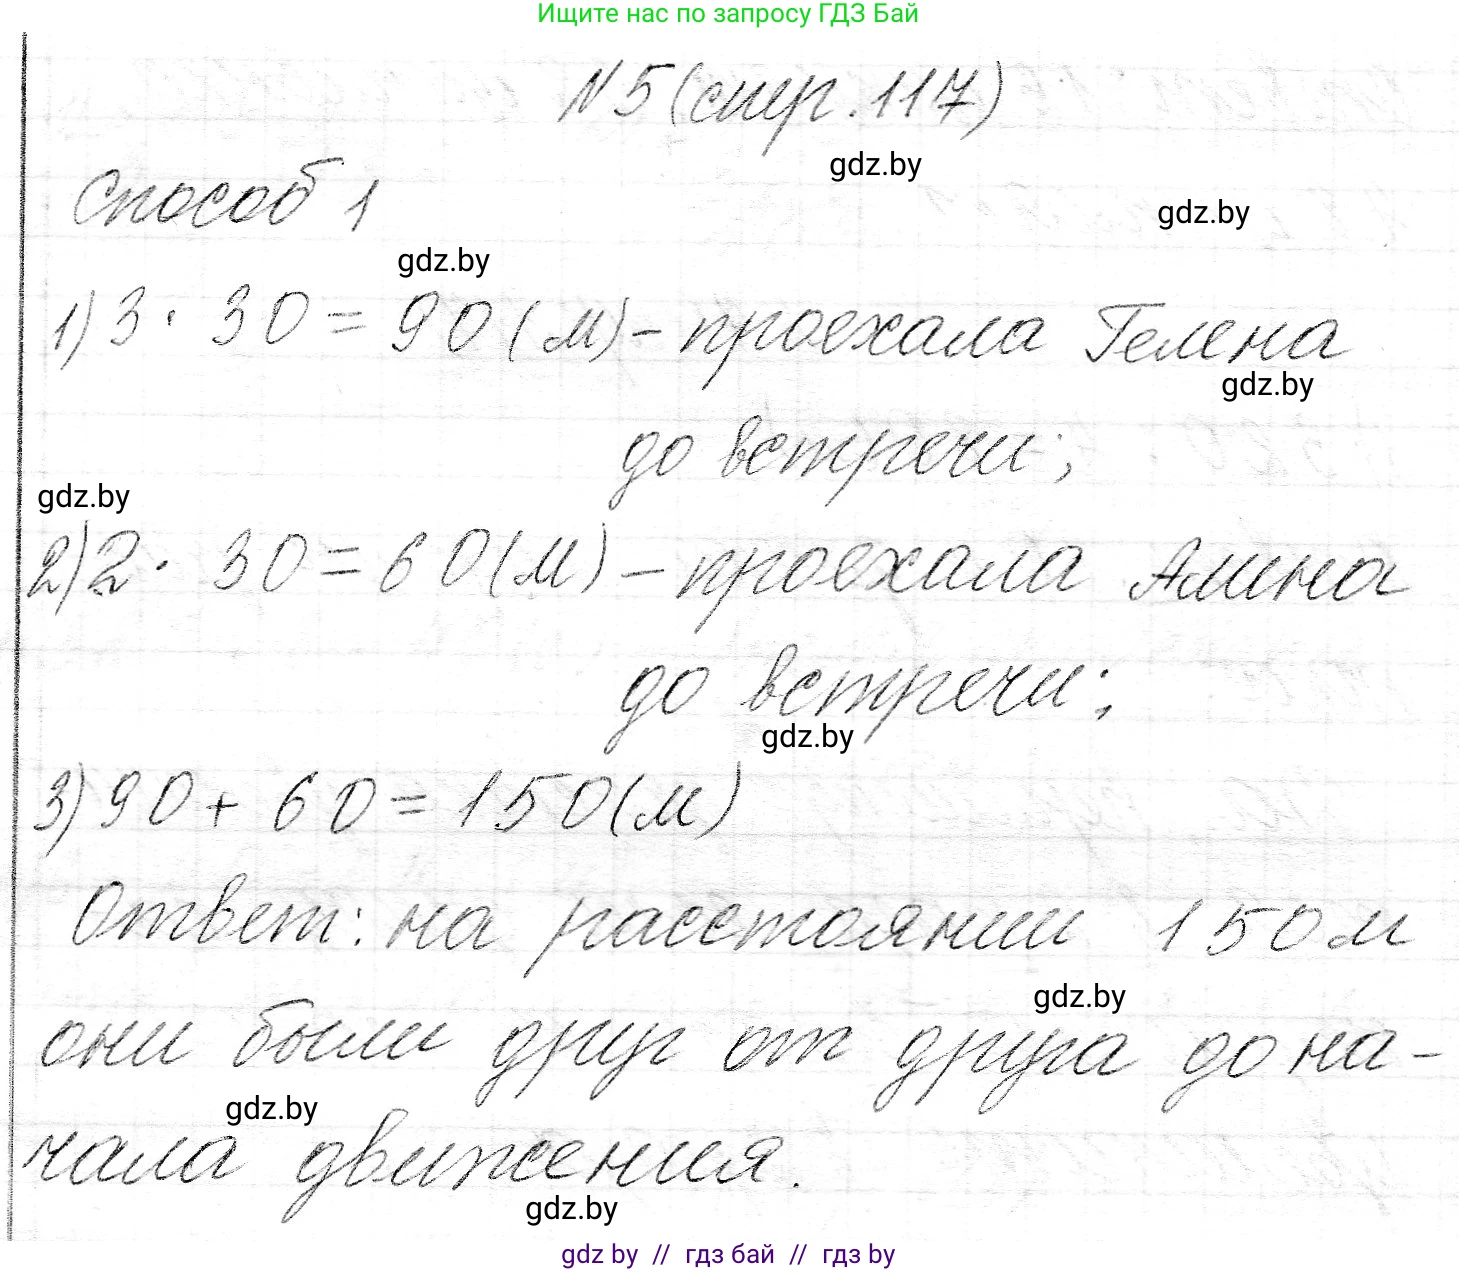 Ищите нас по запросу ГДЗ Бай
N 5 (стр. 117)
gdz.by
Способ 1
gdz.by
gdz.by
1) 3 · 30 = 90 (м) - проехала Гелена
gdz.by
до встречи;
gdz.by
2) 2 · 30 = 60 (м) - проехала Амина
до встречи;
gdz.by
3) 90 + 60 = 150 (м)
Ответ: на расстоянии 150 м
gdz.by
они были друг от друга до на-
gdz.by
чала движения.
gdz.by
gdz by // гдз бай // гдз by